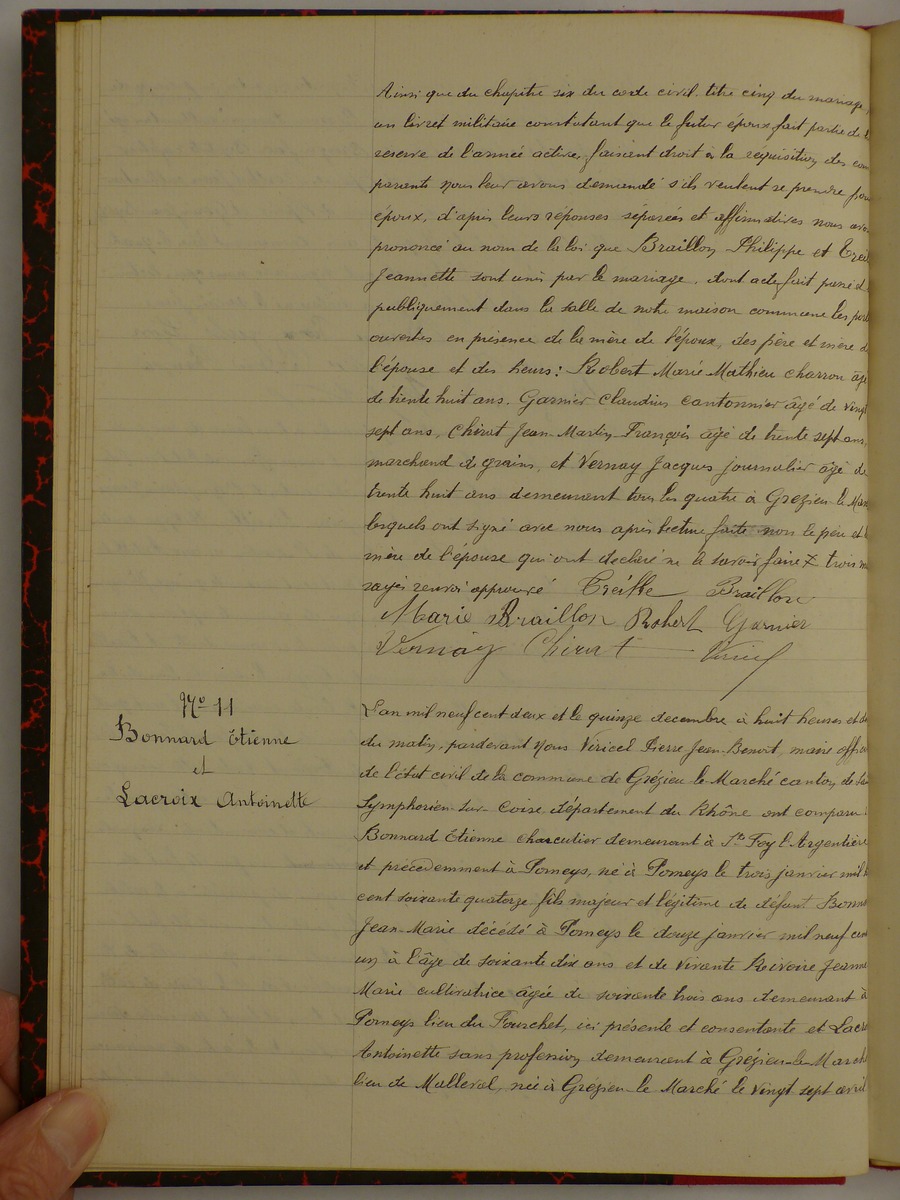 Ainsi que du chapitre six du code civil. titre cinq du mariage,
un livret militaire constatant que le futur époux fait partie de l
reserve de l'armée active, faisant droit à la réquisition des com
parants nous leur avons demandé s'ils veulent se prendre pour
époux, d'après leurs réponses séparées et affirmatives nous avon
prononcé au nom de la loi que Braillon Philippe et Treil
Jeannette sont unis par le mariage, dont acte fait passé
publiquement dans la salle de notre maison commune les port
ouvertes en présence de la mère de l'époux, des père et mère de
l'épouse et des sieurs: Robert Marie Mathieu charron âgé
de trente huit ans. Garnier Claudius cantonnier âgé de vingt
sept ans, Chirat Jean-Martin-François âgé de trente sept ans,
marchand de grains, et Vernay Jacques journalier âgé de
trente huit ans demeurant tous les quatre à Grézieu-le-Mar
lesquels ont signé avec nous après lecture faite non le père et l
mère de l'épouse qui ont declaré ne le savoir faire X trois m
rayés renvoi approuvé Treille Braillon
Marie Braillon Robert Garnier
Vernay Chirat Viricel
N° 11
Bonnard Etienne
et
Lacroix Antoinette
L'an mil neuf cent deux et le quinze decembre à huit heures et de
du matin, pardevant Nous Viricel Pierre Jean-Benoit, maire offici
de l'état civil de la commune de Grézieu-le-Marché canton de
Symphorien-sur-Coise, département du Rhône ont comparu:
Bonnard Etienne charcutier demeurant à Ste Foy l'Argentière
et précédemment à Pomeys, né à Pomeys le trois janvier mil h
cent soixante quatorze fils majeur et légitime de défunt Bonna
Jean-Marie décédé à Pomeys le douze janvier mil neuf cent
un à l'âge de soixante dix ans et de vivante Rivoire Jeanne
Marie cultivatrice âgée de soixante trois ans demeurant à
Pomeys lieu du Fourchet, ici présente et consentante et Lacro
Antoinette sans profession demeurant à Grézieu-le-March
lieu de Malleval, née à Grézieu-le-Marché le vingt sept avril